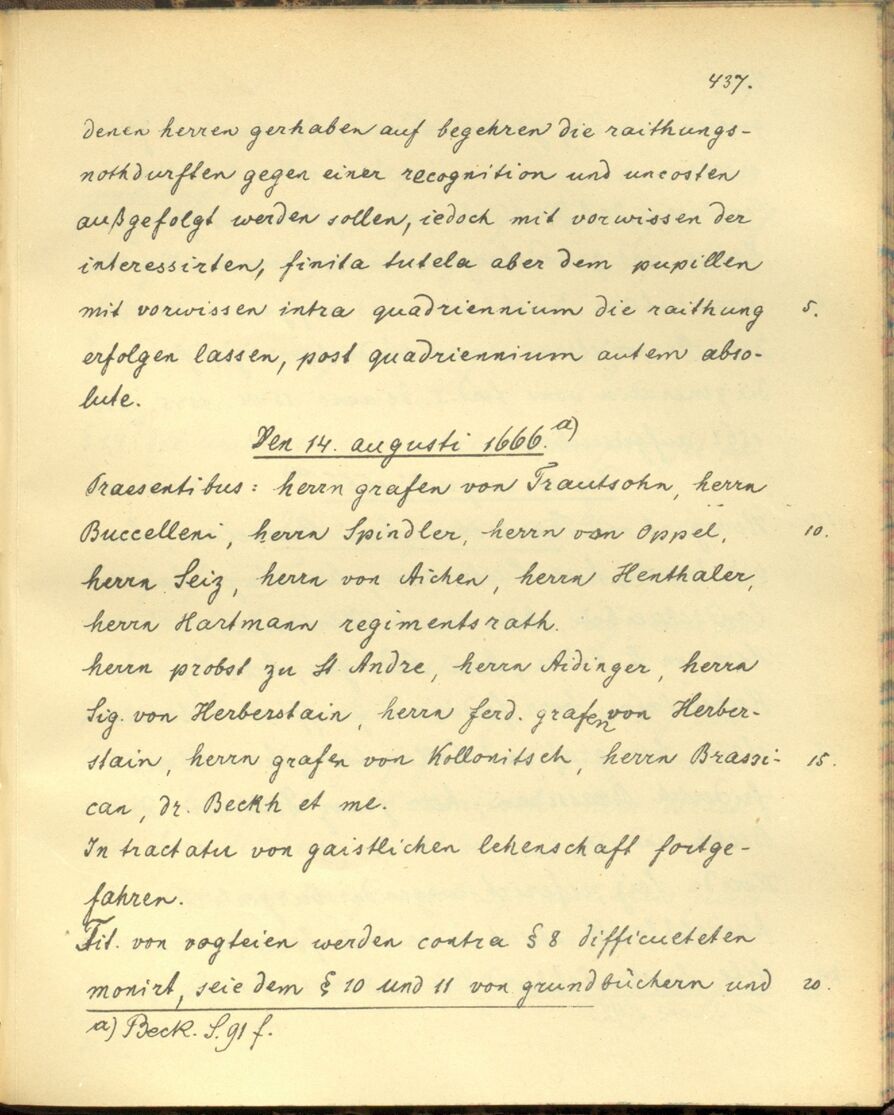 437.
denen herren gerhaben auf begehren die raithungs-
nothdurften gegen einer recognition und uncosten
außgefolgt werden sollen, iedoch mit vorwissen der
interessirten, finita tutela aber dem pupillen
mit vorwissen intra quadriennium die raithung 5.
erfolgen lassen, post quadriennium autem abso-
lute.
Den 14. augusti 1666. a)
Praesentibus: herrn grafen von Trautsohn, herrn
Buccelleni, herrn Spindler, herrn von Oppel, 10.
herrn Seiz, herrn von Aichen, herrn Henthaler,
herrn Hartmann regimentsrath.
herrn probst zu St Andre, herrn Aidinger, herrn
Sig. von Herberstain, herrn ferd. grafen von Herber-
stain, herrn grafen von Kollonitsch, herrn Brassi- 15.
can, dr. Beckh et me.
In tractatu von gaistlichen lehenschaft fortge-
fahren.
Tit. von vogteien werden contra § 8 difficueteten
monirt, seie dem § 10 und 11 von grundbüchern und 20.
a) Beck. S. 91 f.